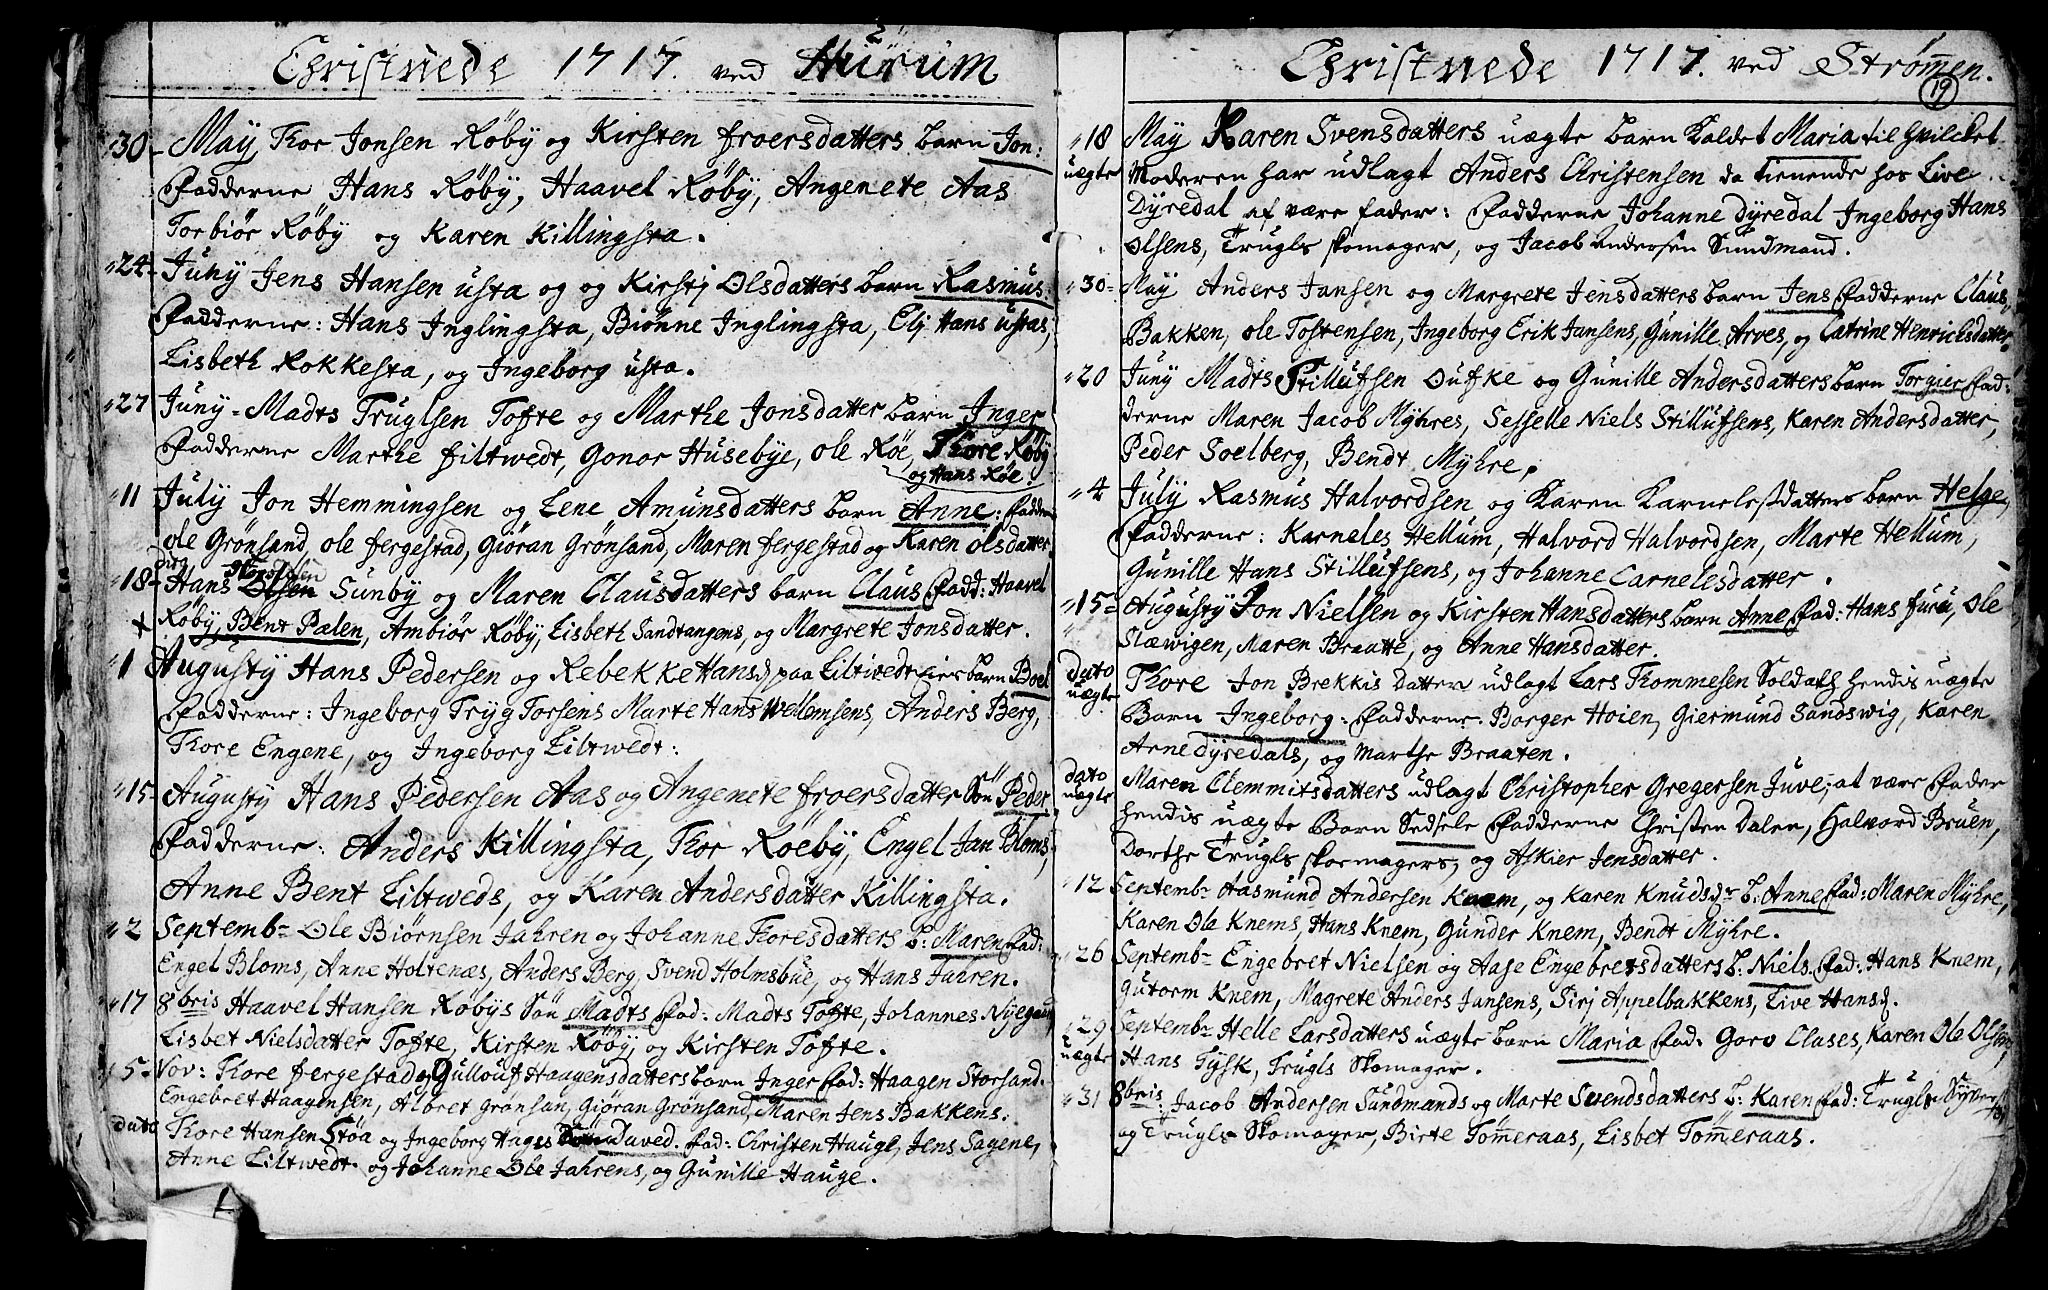 Christnede 1717. ved Hurum
30 May Thor Jonsen Røby og Kirsten froersdatters barn Jon:
Fadderne Hans Røby, Haavel Røby, Angenete Aas
Torbiør Røby og Karen Killingsta.
24 Juny Jens Hansen usta og og Kirstj Olsdatters barn Rasmus.
Fadderne: Hans Inglingsta, Biønne Inglingsta, Elj Hans ustas,
Lisbeth Rokkesta, og Ingeborg usta.
27 Juny Madts Truglsen Tofte og Marthe Jonsdatter barn Inger
Fadderne Marthe filtwedt, Gonor Husebye, ole Røe, Thore Røby
og Hans Røe.
11 July Jon Hemmingsen og Lene Amunsdatters barn Anne: Fadder
ole Grønsand, ole fergestad, Giøran Grønsand, Maren fergestad og Karen olsdatter
18 dito Hans Olsen Sunby og Maren Clausdatters barn Claus Fadd: Haavel
Røby, Bent Palen, Ambiør Røby, Lisbeth Sandtangens, og Margrete Jonsdatter.
1 Augusty Hans Pedersen og Rebekke Hansd paa Liltwedt Eier barn Boel
Fadderne: Ingeborg Tryg Torsens Marte Hans Wellemsens, Anders Berg,
Thore Engene, og Ingeborg Liltwedt:
15 Augusty Hans Pedersen Aas og Angenete froersdatter Søn Peder
Fadderne: Anders Killingsta, Thor Røeby, Engel Jan Bloms,
Anne Bent Liltweds, og Karen Andersdatter Killingsta.
2 Septemb- Ole Biørnsen Jahren og Johanne Thoresdatters b: Maren Fad:
Engel Bloms, Anne Holtenæs, Anders Berg, Svend Holmsbue, og Hans Jahren.
17 8bris Haavel Hansen Røbys Søn Madts Fad: Madts Tofte, Johannes Nyegaard
Lisbet Nielsdatter Tofte, Kirsten Røby, og Kirsten Tofte.
5 Nov: Thore fergestad og Gullouf Haagensdatters barn Inger Fad: Haagen Storsand
Engebret Haagensen, Albret Grønsan, Giøran Grønsand, Maren Jens Bakkens.
dato Thore Hansen Støa og Ingeborg Hages Søn Daved. Fad: Christen Haugl, Jens Sagene,
Anne Liltwedt og Johanne Ole Jahrens, og Gunille Hauge.
Christnede 1717. ved Strømen.
19
18 May Karen Svensdatters uægte barn Kaldet Maria til hvilcket
uægte Moderen har udlagt Anders Christensen da tienende hos Live
Dyredal af være fader: Fadderne Johanne Dyredal Ingeborg Hans
olsens, Trugls skomager, og Jacob Andersen Sundmand.
30 May Anders Jansen og Margrete Jensdatters barn Jens Fadderne Claus
Bakken, ole Tostensen, Ingeborg Erik Jansens, Gunille Arves, og Catrine Henrichsdatter
20 Juny Madts Stillufsen Oufke og Gunille Andersdatters barn Torgier Fad:
derne Maren Jacob Myhres, Sesselle Niels Stillufsens, Karen Andersdatter,
Peder Soelberg, Bendt Myhre.
4 July Rasmus Halvordsen og Karen Karnelesdatters barn Helge
Fadderne: Karneles Hellum, Halvord Halvordsen, Marte Hellum,
Gunille Hans Stillufsens, og Johanne Carnelesdatter.
15 Augusty Jon Nielsen og Kirsten Hansdatters barn Anne Fad: Hans furu, Ole
Slæwigen, Maren Braatte, og Anne Hansdatter.
dato uægte Thore Jon Brekkis Datter udlagt Lars Thommesen Soldath hendis uægte
Barn Ingeborg. Fadderne: Borger Hoien, Giermund Sandswig, Karen
Arne Dyredals, og Marthe Braaten.
dato uægte Maren Clemmitsdatters udlagt Christopher Gregersen Juve, at være Fader
hendis uægte Barn Sedsele Fadderne Christen Dalen, Halvord Bruen,
Dorthe Trugls skomagers, og Askier Jensdatter.
12 Septemb- Aasmund Andersen Knem, og Karen Knudsdr b: Anne Fad: Maren Myhre,
Karen Ole Knems, Hans Knem, Gunder Knem, Bendt Myhre.
26 Septemb- Engebret Nielsen og Aase Engebretsdatters b: Niels. Fad: Hans Knem,
Gutorm Knem, Magrete Anders Jansens, Sirj Appelbakkens, Live Hansd.
29 Septemb- Helle Larsdatters uægte barn Maria Fad: Goro Clases, Karen Ole Olsens
uægte Hans Tysk, Trugls Skomager.
31 8bris: Jacob Andersen Sundmands og Marte Svendsdatters b: Karen Fad: Trugls
og Trugls Skomager, Birte Tomeraas, Lisbet Tomeraas.